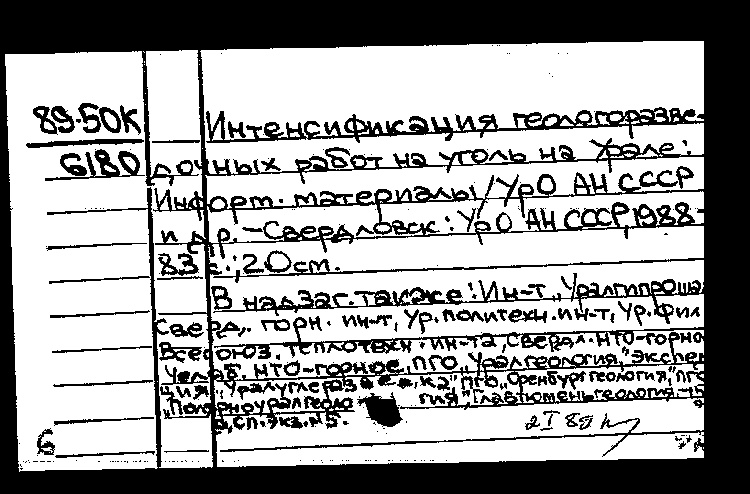 89-50К
6180
Интенсификация геологоразве-
дочных работ на уголь на Урале:
Информ. материалы/УрО АН СССР
и др. – Свердловск: УрО АН СССР, 1988-
83 с.; 20 см.
В надзаг. также: Ин-т „Уралгипрошах
Сверд. горн. ин-т, Ур. политехн. ин-т, Ур. фил
Всесоюз. теплотехн. ин-та, Свердл. НТО-горно
Челяб. НТО-горное, ПГО „Уралгеология," Экспе
ция „Углеразведка" ПГО „Оренбурггеология," ПГО
„Полярноуралгеология", Главтюменьгеология
сп. экз. №5.
6